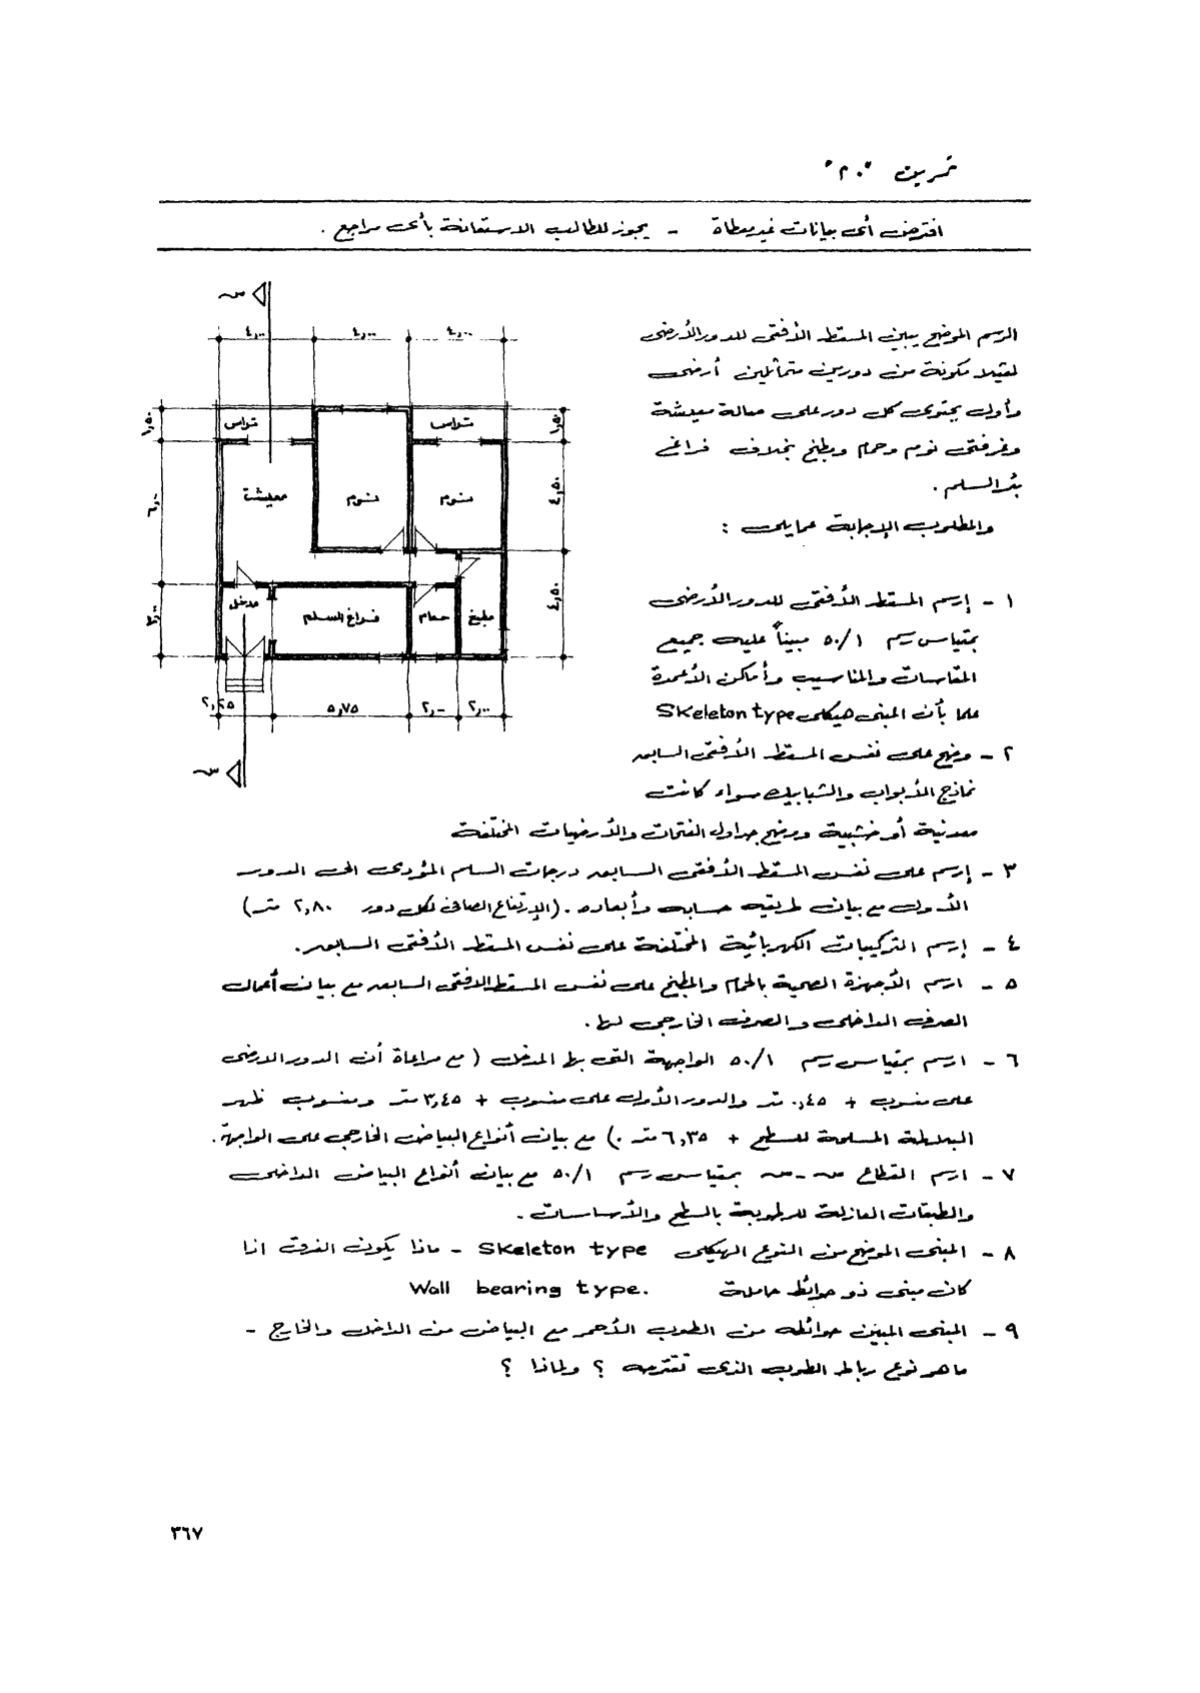 تمرين "٢٠"
افترض أى بيانات غير معطاة - يجوز للطالب الاستعانة بأى مراجع .
الرسم الموضح يبين المسقط الأفقى للدور الأرضى
لفيلا مكونة من دورين متماثلين أرضى
وأول يحتوى كل دور على صالة معيشة
وغرفتى نوم وحمام ومطبخ بخلاف فراغ
بئر السلم .
والمطلوب الإجابة عما يلى :
س
٤٫٠٠ ٤٫٠٠ ٤٫٠٠
١٫٥٠ ٦٫٠٠ ٣٫٠٠
١٫٥٠ ٤٫٥٠ ٤٫٥٠
تراس تراس
معيشة نوم نوم
مدخل فراغ السلم حمام مطبخ
٢٫٢٥ ٥٫٧٥ ٢٫٠٠ ٢٫٠٠
س
١ - إرسم المسقط الأفقى للدور الأرضى
بمقياس رسم ٥٠/١ مبيناً عليه جميع
المقاسات والمناسيب وأماكن الأعمدة
علما بأن المبنى هيكلى Skeleton type
٢ - وضح على نفس المسقط الأفقى السابق
نماذج الأبواب والشبابيك سواء كانت
معدنية أو خشبية ووضح جداول الفتحات والأرضيات المختلفة
٣ - إرسم على نفس المسقط الأفقى السابق درجات السلم المؤدى الى الدور
الأول مع بيان طريقة حسابه وأبعاده . (الإرتفاع الصافى لكل دور ٢,٨٠ متر)
٤ - إرسم التركيبات الكهربائية المختلفة على نفس المسقط الأفقى السابق .
٥ - ارسم الأجهزة الصحية بالحمام والمطبخ على نفس المسقط الافقى السابق مع بيان أعمال
الصرف الداخلى والصرف الخارجى لها .
٦ - ارسم بمقياس رسم ٥٠/١ الواجهة التى بها المدخل ( مع مراعاة أن الدور الارضى
على منسوب + ٠,٤٥ متر والدور الأول على منسوب + ٣,٤٥ متر ومنسوب ظهر
البلاطة المسلحة للسطح + ٦,٣٥ متر .) مع بيان أنواع البياض الخارجى على الواجهة .
٧ - ارسم القطاع س - س بمقياس رسم ٥٠/١ مع بيان أنواع البياض الداخلى
والطبقات العازلة للرطوبة بالسطح والأساسات .
٨ - المبنى الموضح من النوع الهيكلى Skeleton type - ماذا يكون الفرق اذا
كان مبنى ذو حوائط حاملة Wall bearing type.
٩ - المبنى المبين حوائطه من الطوب الأحمر مع البياض من الداخل والخارج -
ما هو نوع رباط الطوب الذى تقترحه ؟ ولماذا ؟
٣٦٧